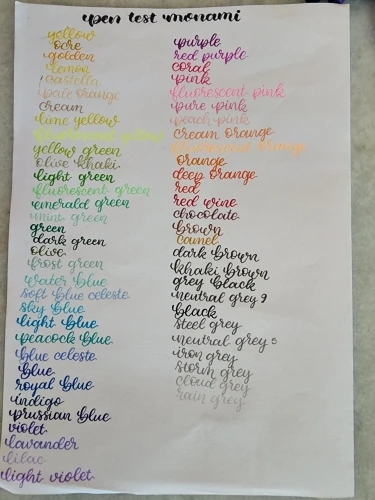 pen test monami
yellow
ocre
golden
lemon
castella
pale orange
cream
lime yellow
fluorescent yellow
yellow green
olive khaki
light green
fluorescent green
emerald green
mint green
green
dark green
olive
frost green
water blue
soft blue celeste
sky blue
light blue
peacock blue
blue celeste
blue
royal blue
indigo
prussian blue
violet
lavander
lilac
light violet
purple
red purple
coral
pink
fluorescent pink
pure pink
peach pink
cream orange
fluorescent orange
orange
deep orange
red
red wine
chocolate
brown
camel
dark brown
khaki brown
grey black
neutral grey 9
black
steel grey
neutral grey 5
iron grey
storm grey
cloud grey
rain grey